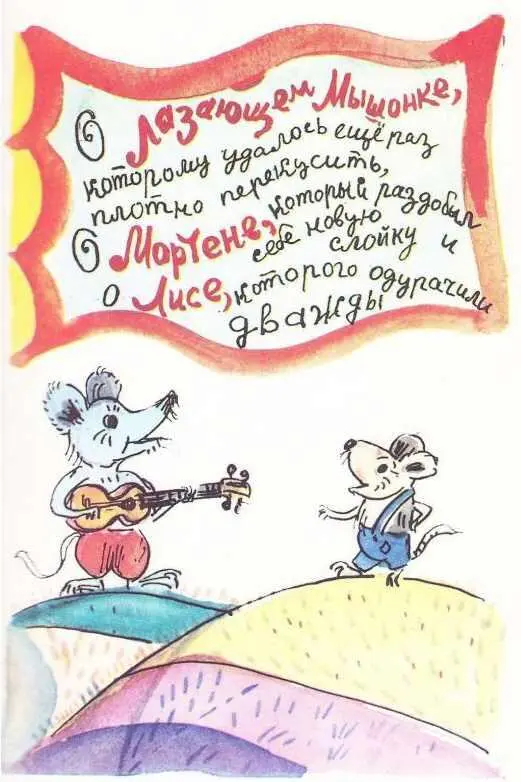 О Лазающем Мышонке,
которому удалось ещё раз
плотно перекусить,
О Мортене, который раздобыл
себе новую
слойку и
о Лисе, которого одурачили
дважды